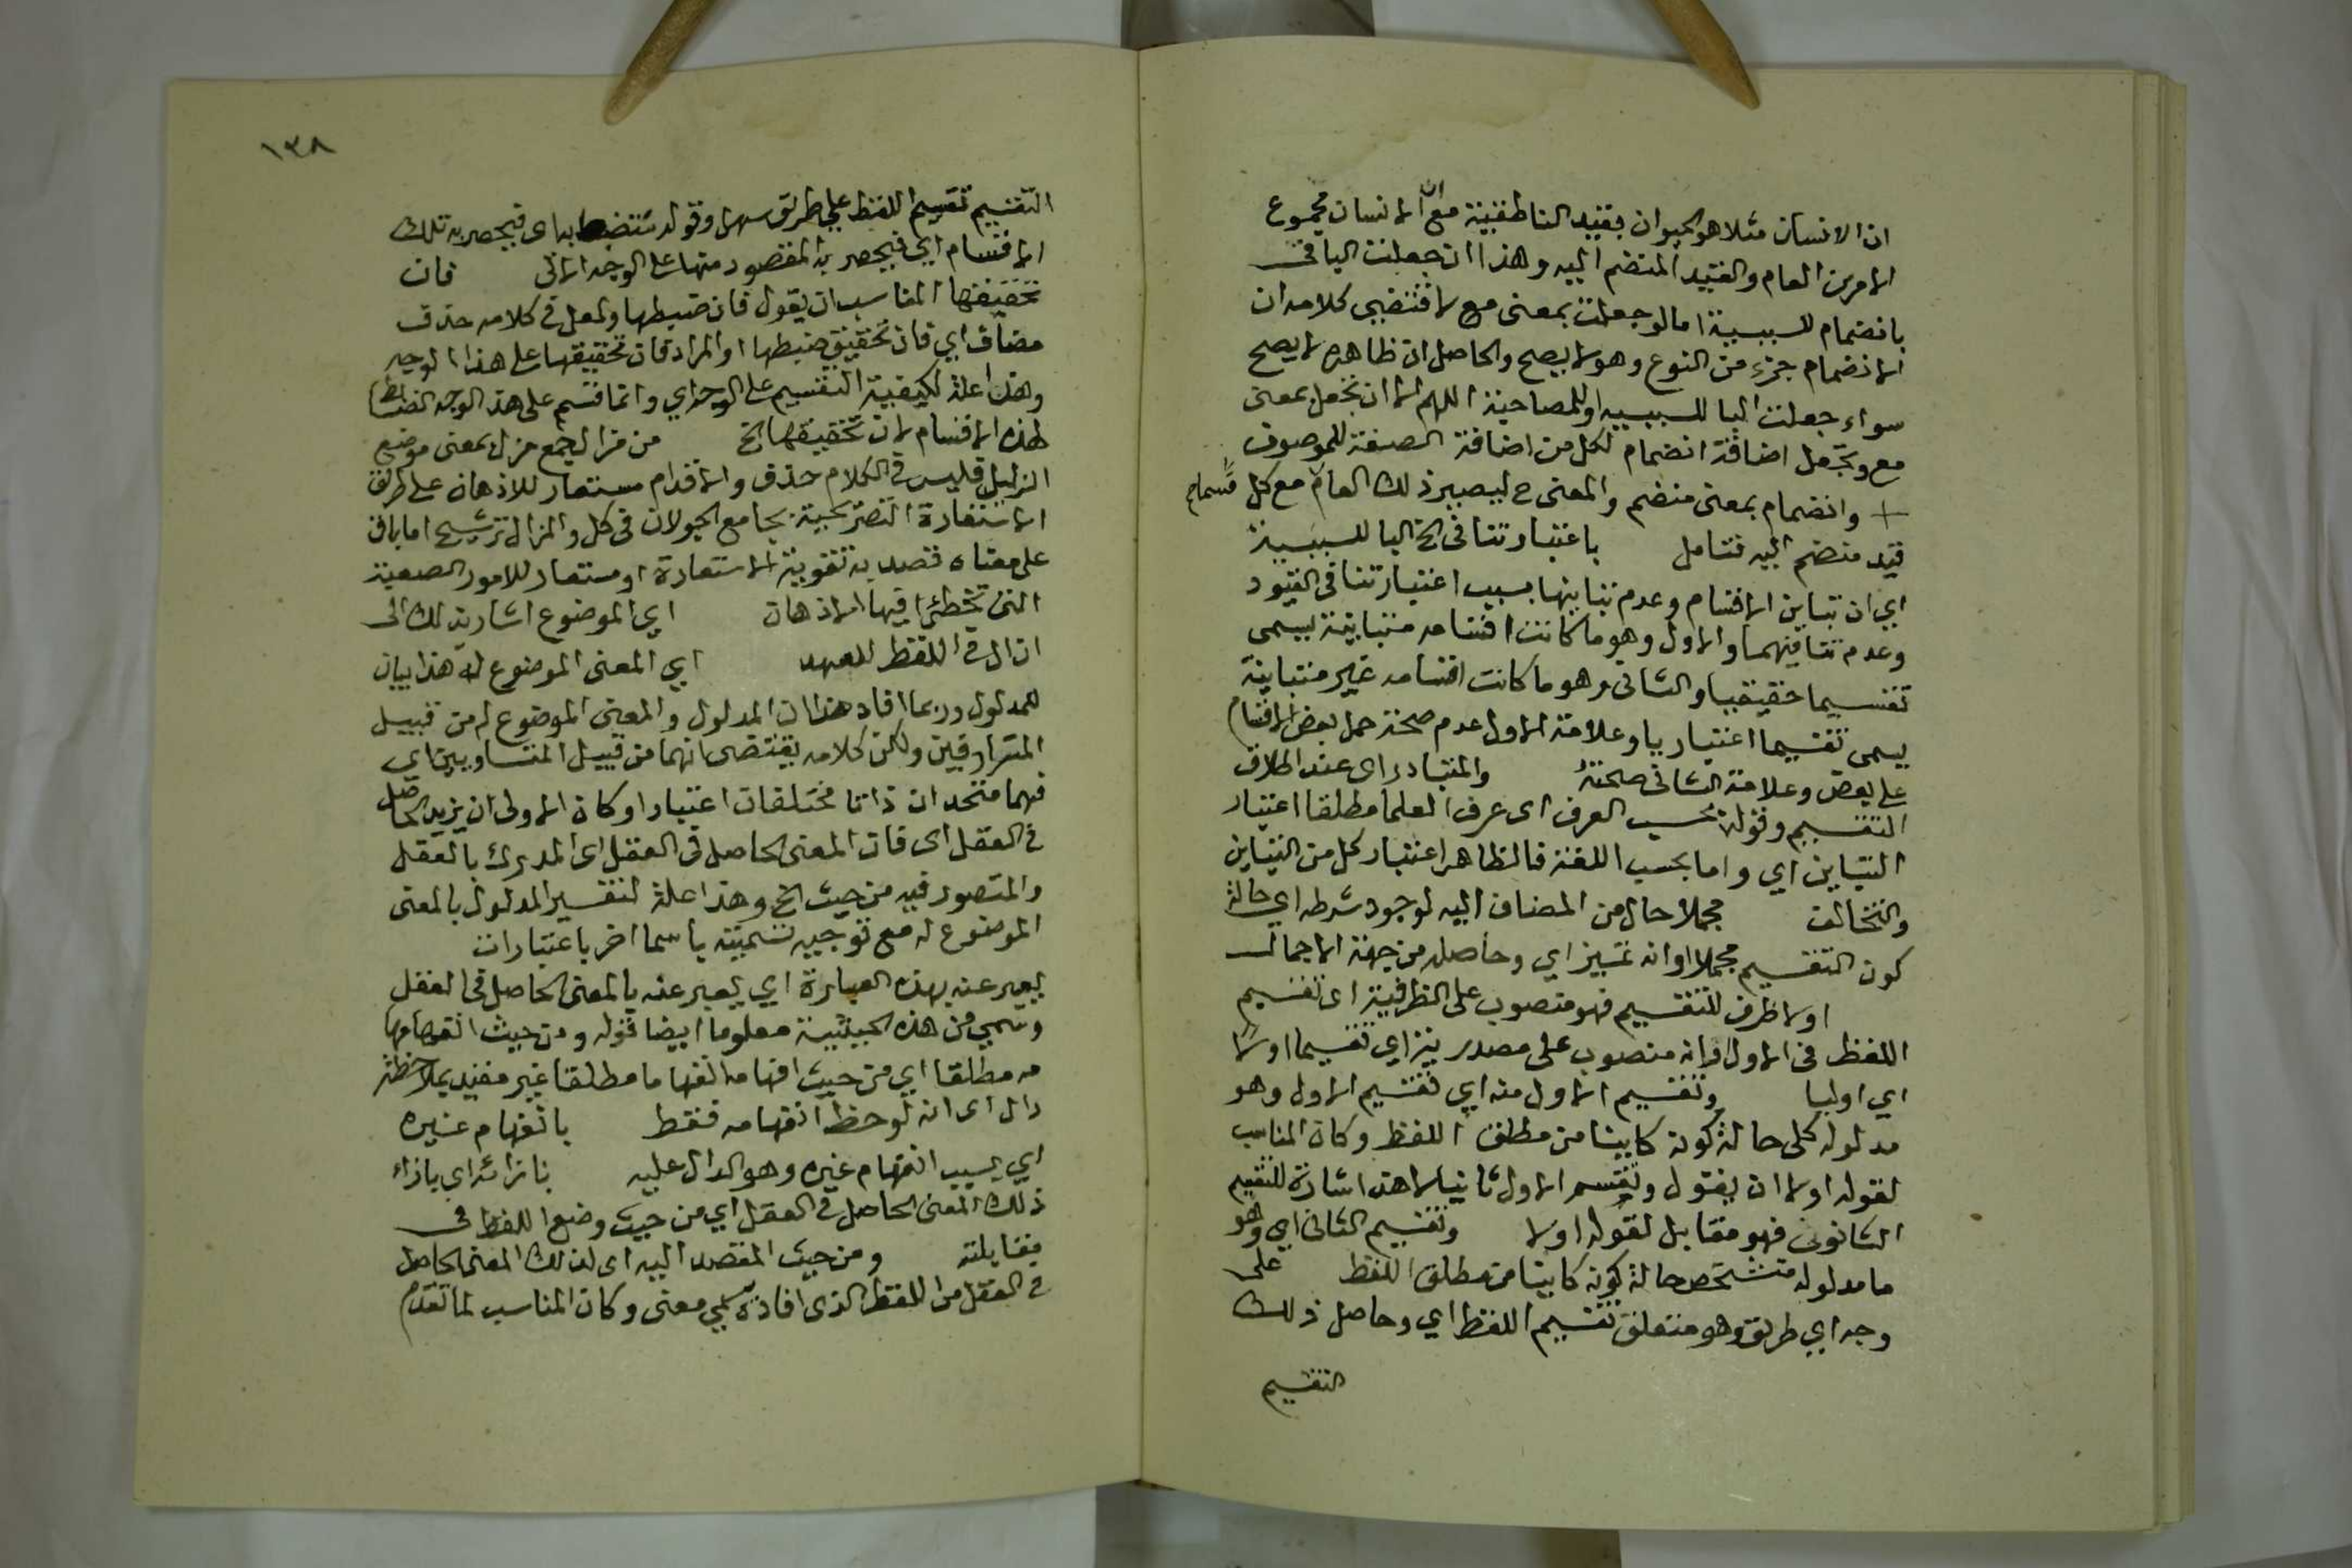 ان الانسان مثلا هو الحيوان بقيد الناطقية مع ان الانسان مجموع
الامرين العام والقيد المنضم اليه وهذا ان جعلت البا في
بانضمام للسببية اما لو جعلت بمعنى مع لاقتضى كلامه ان
الانضمام جزء من النوع وهو لا يصح والحاصل ان ظاهره لا يصح
سواء جعلت البا للسببيه او للمصاحبة اللهم الا ان تجعل بمعنى
مع وتجعل اضافة انضمام لكل من اضافة الصفة للموصوف
وانضمام بمعنى منضم والمعنى ح ليصير ذلك العام مع كل قسما
قيد منضم اليه فتامل باعتبار تنافى الخ البا للسببية
اي ان تباين الاقسام وعدم تباينها بسبب اعتبار تنافى القيود
وعدم تنافيهما والاول وهو ما كانت اقسامه متباينة يسمى
تقسيما حقيقيا والثانى وهو ما كانت اقسامه غير متباينة
يسمى تقسيما اعتباريا وعلامة الاول عدم صحة حمل بعض الاقسام
على بعض وعلامة الثانى صحته والمتبادر اى عند اطلاق
التقسيم وقوله بحسب العرف اى عرف العلما مطلقا اعتبار
التباين اي واما بحسب اللغة فالظاهر اعتبار كل من التباين
والتخالف مجملا حال من المضاف اليه لوجود شرطه اي حالة
كون التقسيم مجملا او انه تمييز اي وحاصله من جهة الاجمال
اولا ظرف للتقسيم فهو منصوب على الظرفية اى تقسيم
اللفظ فى الاول او انه منصوب على مصدريته اي تقسيما اولا
اي اوليا وتقسيم الاول منه اي تقسيم الاول وهو
مدلوله كلى حالة كونه كاينا من مطلق اللفظ وكان المناسب
لقوله اولا ان يقول وتقسيم الاول ثانيا لا هذا اشارة للتقيم
الثانوى فهو مقابل لقوله اولا وتقسيم الثانى اي وهو
ما مدلوله متشخص حالة كونه كاينا من مطلق اللفظ على
وجه اي طريق وهو متعلق بتقسيم اللفظ اي وحاصل ذلك
التقسيم
١٣٨
التقسيم تقسيم اللفظ على طريق سهل وقوله تنضبط بها اى فيحصر به تلك
الاقسام اي فيحصر به المقصود منها على الوجه الاتى فان
تحقيقها المناسب ان يقول فان ضبطها ولعل فى كلامه حذف
مضاف اي فان تحقيق ضبطها او المراد فان تحقيقها على هذا الوجه
وهذا علة لكيفية التقسيم على الوجه اي وانما قسم على هذا الوجه الضابط
لهذه الاقسام لان تحقيقها الخ من مزال جمع مزل بمعنى موضع
الزلل فليس فى الكلام حذف والاقدام مستعار للاذهان على طريق
الاستعارة التصريحية بجامع الجولان فى كل والمزال ترشيح اما باق
على معناه قصد به تقوية الاستعارة او مستعار للامور الصعبة
التى تخطئ فيها الاذهان اي الموضوع اشار بذلك الى
ان ال فى اللفظ للعهد اي المعنى الموضوع له هذا بيان
للمدلول وربما افاد هذا ان المدلول والمعنى الموضوع له من قبيل
المترادفين ولكن كلامه يقتضى انهما من قبيل المتساويين اي
فهما متحدان ذاتا مختلفان اعتبارا وكان الاولى ان يزيد الحاصل
فى العقل اى فان المعنى الحاصل فى العقل اى المدرك بالعقل
والمتصور فيه من حيث الخ وهذا علة لتفسير المدلول بالمعنى
الموضوع له مع توجيه تسميته باسما اخر باعتبارات
يعبر عنه بهذه العبارة اي يعبر عنه بالمعنى الحاصل فى العقل
وسمي من هذه الحيثية معلوما ايضا قوله ومن حيث انفهامها
مه مطلقا اي من حيث افهامه انفهاما مطلقا غير مقيد بملاحظة
دال اى انه لوحظ انفهامه فقط بانفهام غيره
اي بسبب انفهام غيره وهو الدال عليه بازائه اى بازاء
ذلك المعنى الحاصل فى العقل اي من حيث وضع اللفظ فى
مقابلته ومن حيث القصد اليه اى لذلك المعنى الحاصل
فى العقل من اللفظ الذى افاده سمي معنى وكان المناسب لما تقدم